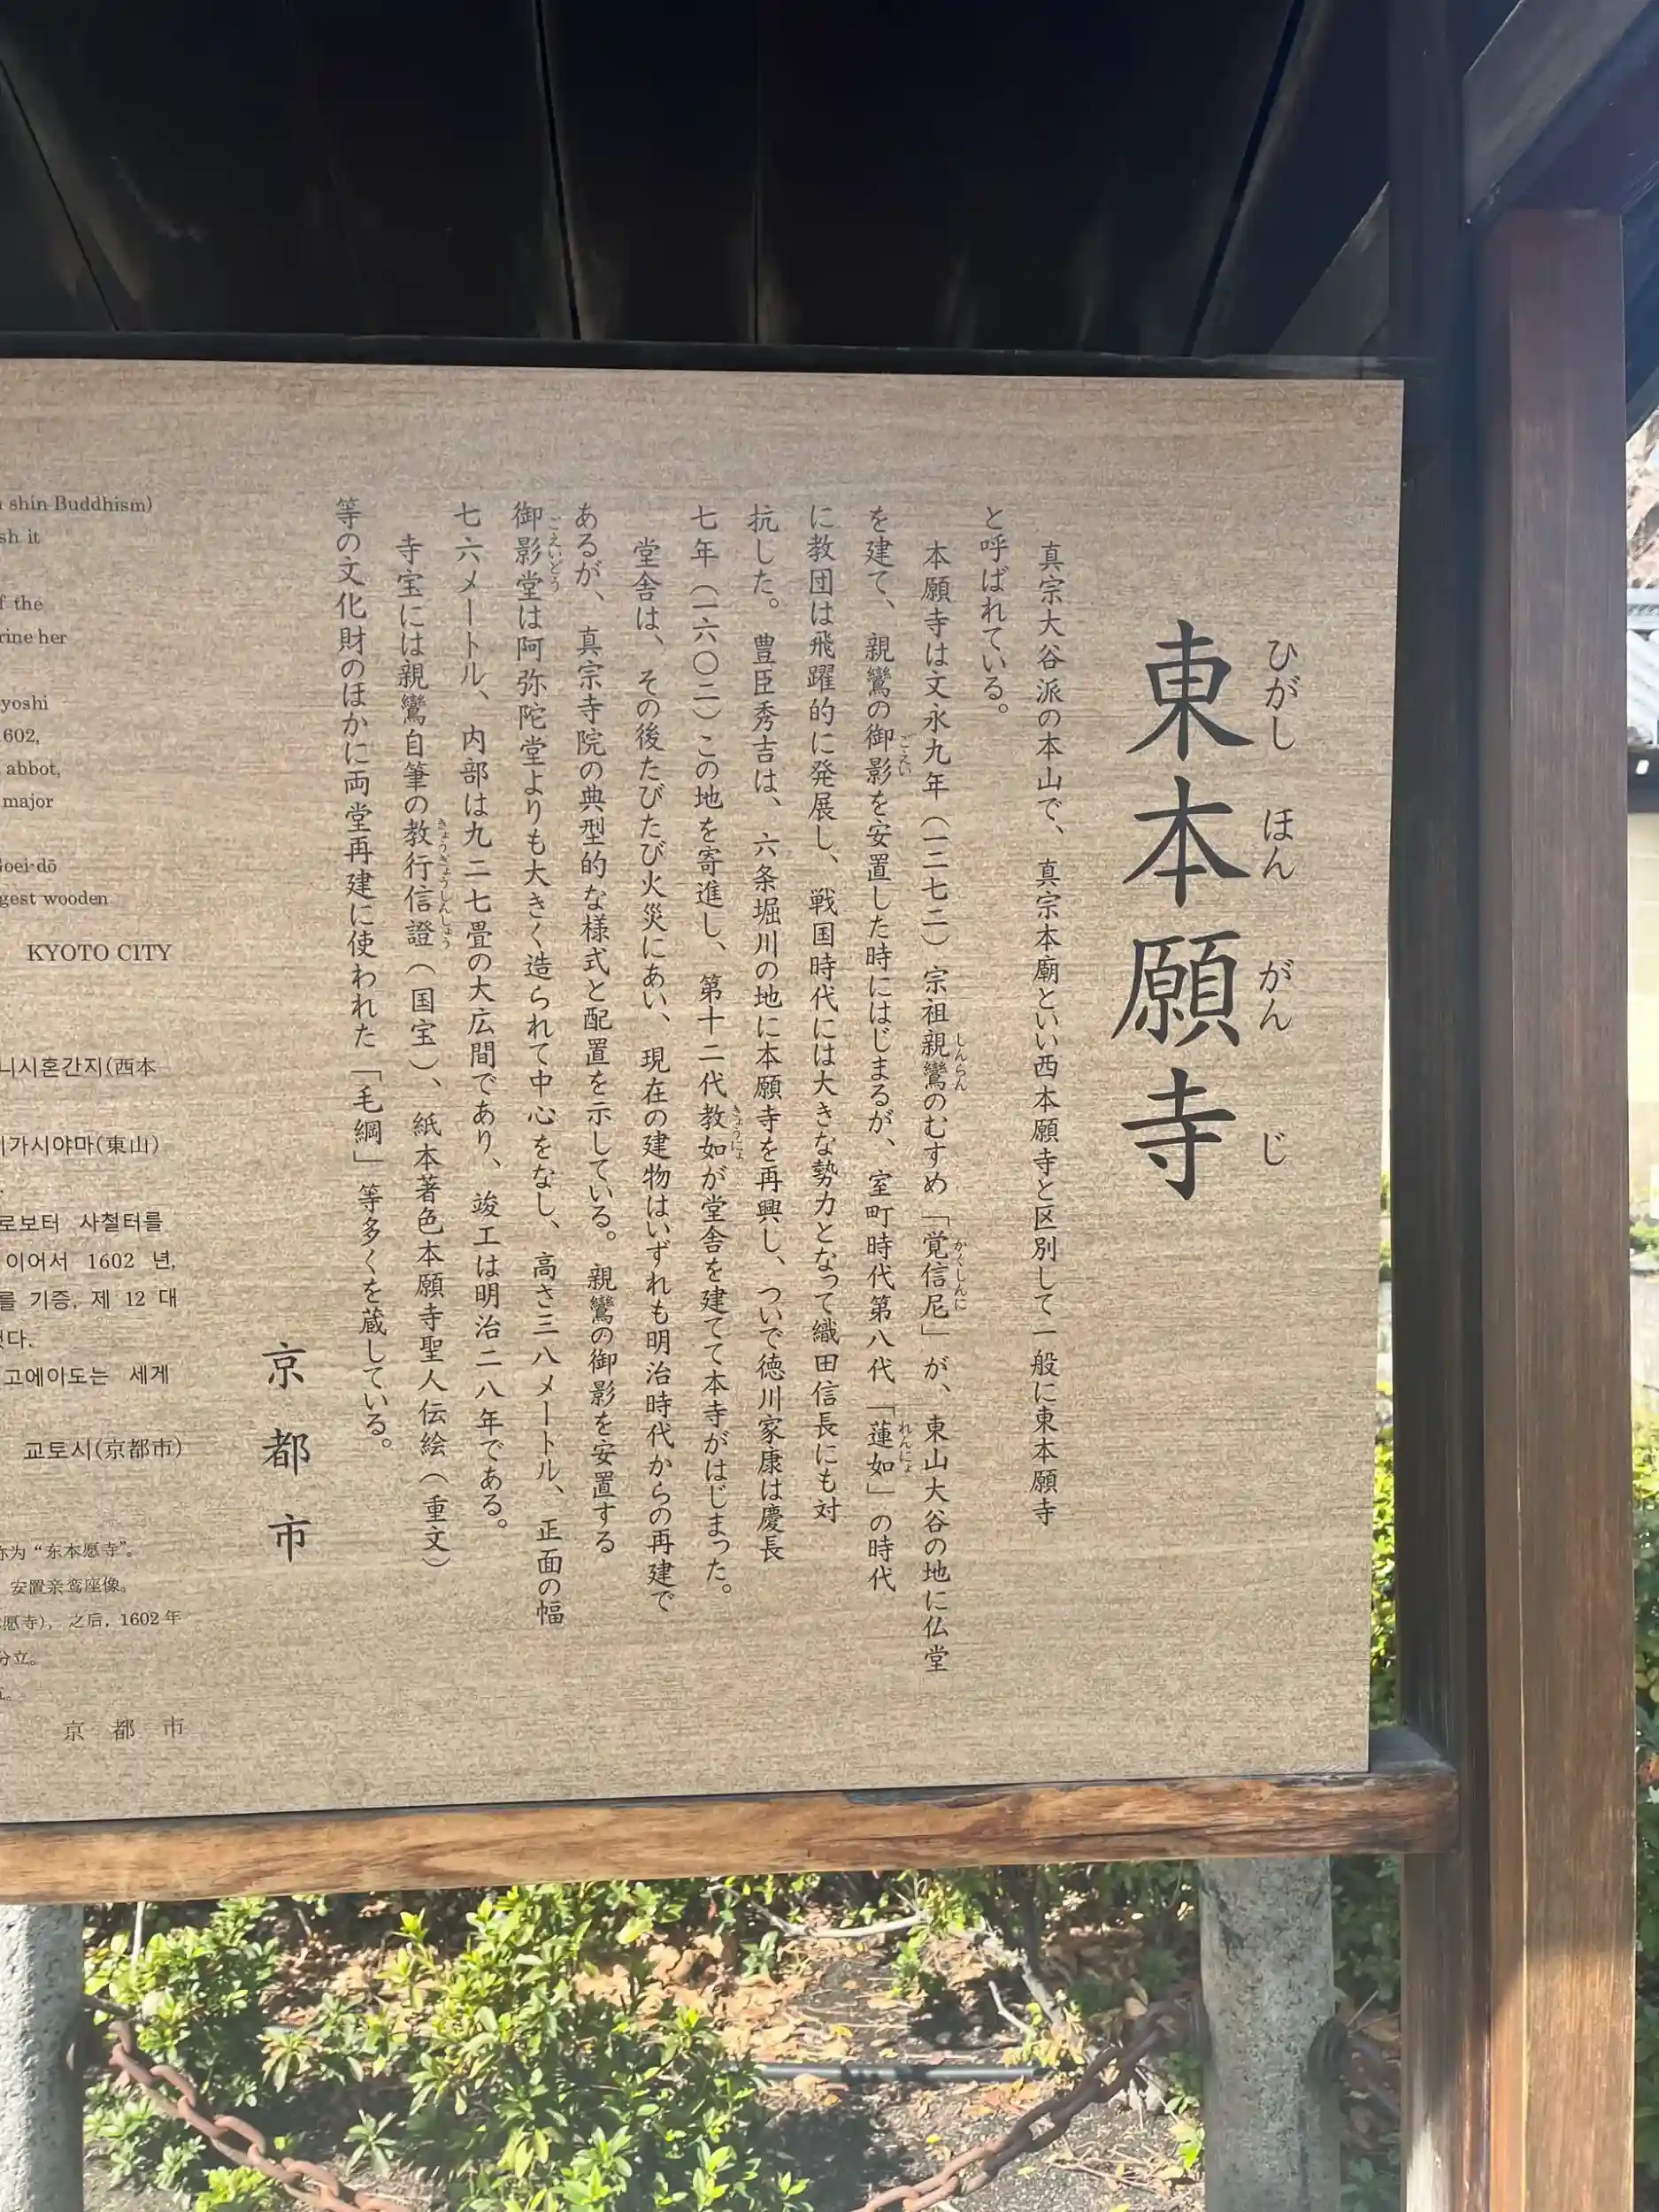 東本願寺
ひがし ほん がん じ
真宗大谷派の本山で、真宗本廟といい西本願寺と区別して一般に東本願寺
と呼ばれている。
本願寺は文永九年（一二七二）宗祖親鸞のむすめ「覚信尼」が、東山大谷の地に仏堂
しんらん かくしんに
を建て、親鸞の御影を安置した時にはじまるが、室町時代第八代「蓮如」の時代
ごえい れんにょ
に教団は飛躍的に発展し、戦国時代には大きな勢力となって織田信長にも対
抗した。豊臣秀吉は、六条堀川の地に本願寺を再興し、ついで徳川家康は慶長
七年（一六〇二）この地を寄進し、第十二代教如が堂舎を建てて本寺がはじまった。
きょうにょ
堂舎は、その後たびたび火災にあい、現在の建物はいずれも明治時代からの再建で
あるが、真宗寺院の典型的な様式と配置を示している。親鸞の御影を安置する
御影堂は阿弥陀堂よりも大きく造られて中心をなし、高さ三八メートル、正面の幅
ごえいどう
七六メートル、内部は九二七畳の大広間であり、竣工は明治二八年である。
寺宝には親鸞自筆の教行信證（国宝）、紙本著色本願寺聖人伝絵（重文）
きょうぎょうしんしょう
等の文化財のほかに両堂再建に使われた「毛綱」等多くを蔵している。
京都市
shin Buddhism)
sh it
f the
rine her
yoshi
1602,
abbot,
major
Goei-dō
gest wooden
KYOTO CITY
니시혼간지(西本
히가시야마(東山)
로보터 사철터를
이어서 1602 년,
를 기증, 제 12 대
했다.
고에이도는 세계
교토시(京都市)
称为“东本愿寺”。
安置亲鸾座像。
愿寺)，之后，1602年
分立。
京都市